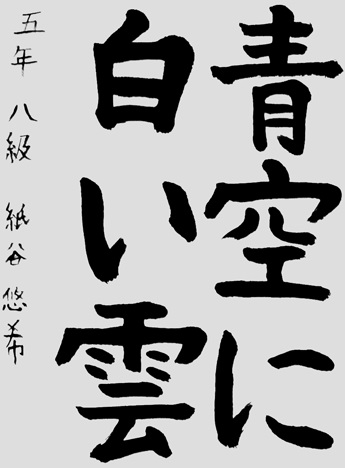 青空に
白い雲
五年 八級 紙谷 悠希